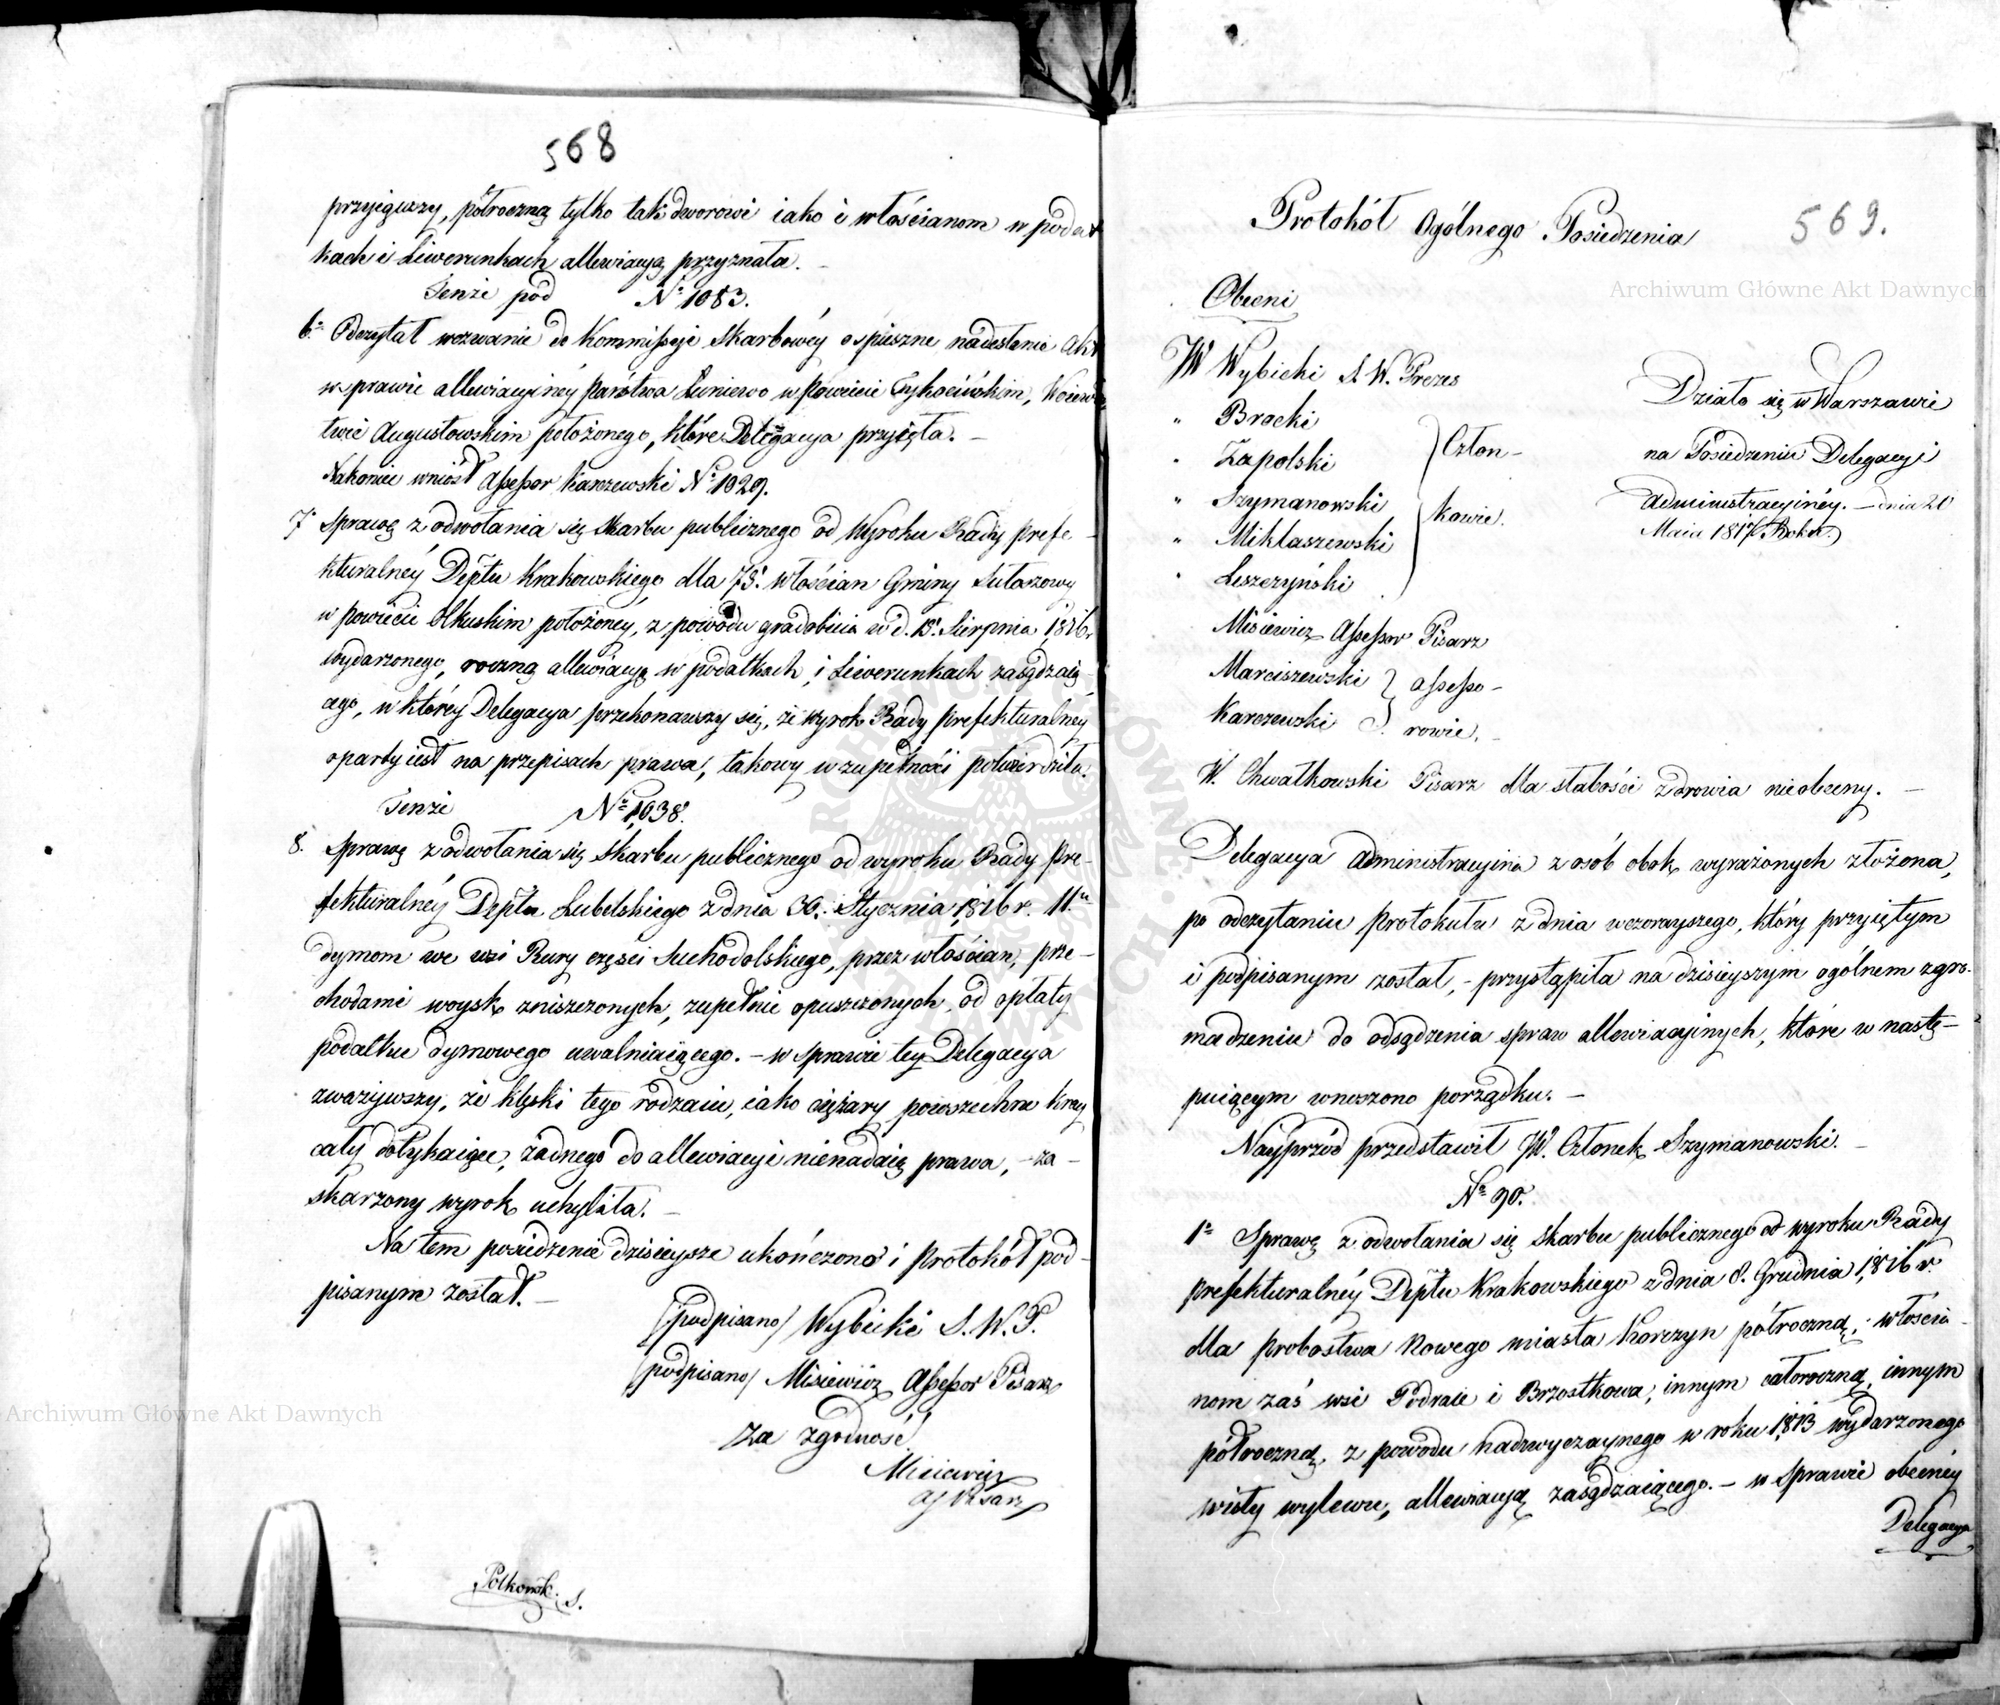 568
przyiąwszy, półroczną tylko tak dworowi iako i włościanom w podat
kach i Liwerunkach allewiacyą przyznała. –
Tenże pod Nr 1083.
6. Odczytał wezwanie do Kommissyi Skarbowéy o spieszne nadesłanie Akt
w sprawie allewiacyinéy Państwa Łuniewo w Powiecie Tykocińskim, Woiewódz
twie Augustowskim położonego, które Delegacya przyięła. –
Nakoniec wniósł Assessor Karczewski Nr 1029.
7. Sprawę z odwołania się Skarbu publicznego od Wyroku Rady Prefe-
kturalnéy Deptu Krakowskiego dla 78. włościan Gminy
w Powiecie Olkuskim położonéy, z powodu gradobicia w d. 15. Sierpnia 1816
wydarzonego, roczną allewiacyą w podatkach i Liwerunkach zasądzaią-
cego, w któréy Delegacya przekonawszy się, że wyrok Rady prefekturalnéy
oparty iest na przepisach prawa, takowy w zupełności potwierdziła.
Tenże Nr 1038.
8. Sprawę z odwołania się Skarbu publicznego od wyroku Rady Pre-
fekturalnéy Deptu Lubelskiego z dnia 30. Stycznia 1816 r. 11.u
dymom we wsi Rury części Suchodolskiego, przez włościan, prze-
chodami woysk zniszczonych, zupełnie opuszczonych, od opłaty
podatku dymowego uwalniaiącego. – w sprawie tey Delegacya
zważywszy, że klęski tego rodzaiu, iako ciężary powszechne kray
cały dotykaiące, żadnego do allewiacyi nienadaią prawa, – za-
skarżony wyrok uchyliła. –
Na tem posiedzenie dzisieysze ukończono i Protokół pod-
pisanym został. –
/podpisano/ Wybicki S. W. P.
/podpisano/ Misiewicz Assessor Pisarz
Za zgodność
Misiewicz
As Pisarz
Polkowski S.
569.
Protokół Ogólnego Posiedzenia
Obecni
JW Wybicki S. W. Prezes
" Brocki
" Zapolski } Człon-
" Szymanowski
" Miklaszewski } kowie.
" Leszczyński
Misiewicz Assessor Pisarz
Marciszewski } Assesso-
Karczewski } rowie. –
Działo się w Warszawie
na Posiedzeniu Delegacyi
Administracyinéy. – dnia 20
Maia 1817 Roku.
W. Chwałkowski Pisarz dla słabości zdrowia nieobecny. –
Delegacya Administracyina z osób obok wyrażonych złożona,
po odczytaniu Protokułu z dnia wczorayszego, który przyiętym
i podpisanym został, – przystąpiła na dzisieyszym ogólnem zgro-
madzeniu do odsądzenia spraw allewiacyinych, które w nastę-
puiącym wnoszono porządku. –
Nayprzód przedstawił JW. Członek Szymanowski. –
Nr 90.
1o Sprawę z odwołania się Skarbu publicznego od wyroku Rady
prefekturalnéy Deptu Krakowskiego z dnia 8. Grudnia 1816 r.
dla Probostwa Nowego miasta Korczyn półroczną, włościa-
nom zaś wsi Podraie i Brzostkowa, innym całoroczną, innym
półroczną, z powodu nadzwyczaynego w roku 1813 wydarzonego
wisły wylewu, allewiacyą zasądzaiącego. – w sprawie obecnéy
Delegacya
Archiwum Główne Akt Dawnych
Archiwum Główne Akt Dawnych